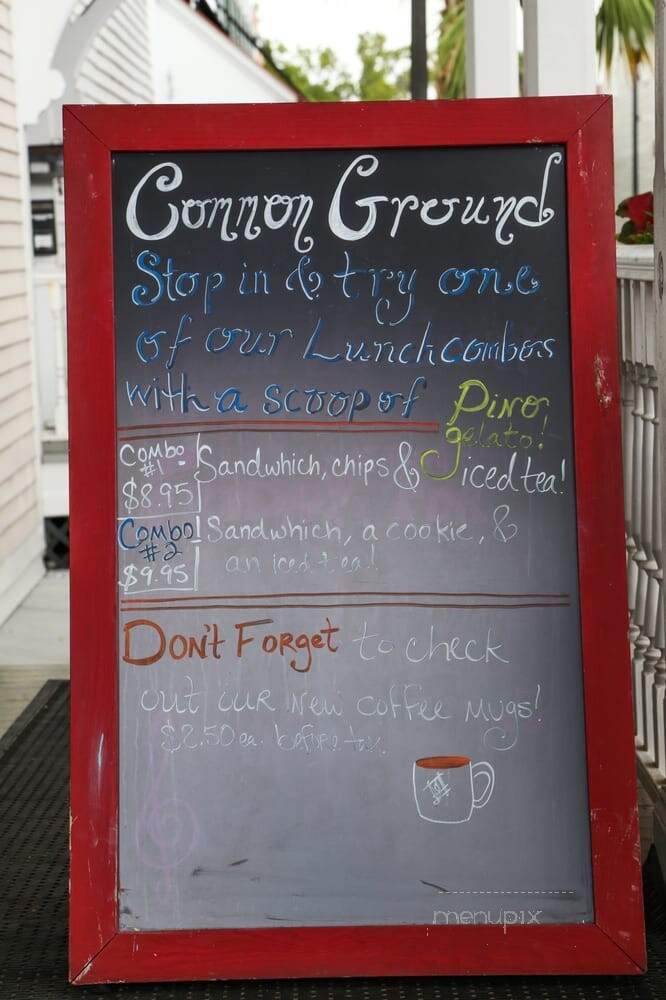 Common Ground
Stop in & try one
of our Lunch combos
with a scoop of Pino
gelato!
Combo
#1
$8.95
Sandwhich, chips & iced tea!
Combo!
#2
$9.95
Sandwhich, a cookie, &
an iced tea!
Don't Forget to check
out our New coffee mugs!
$2.50 ea. before tax.
menupix